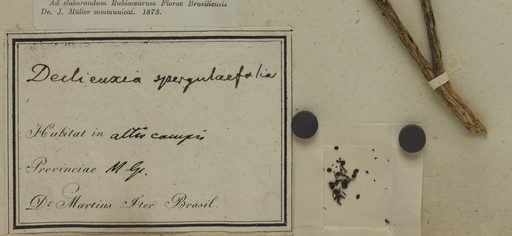 Ad elaborandum Rubiacearum Florae Brasiliensis
Do. J. Müller communicat. 1873.
Declieuxia spergulaefolia
Habitat in altis campis
Provinciae M. Gr.
Dr. Martius Iter Brasil.